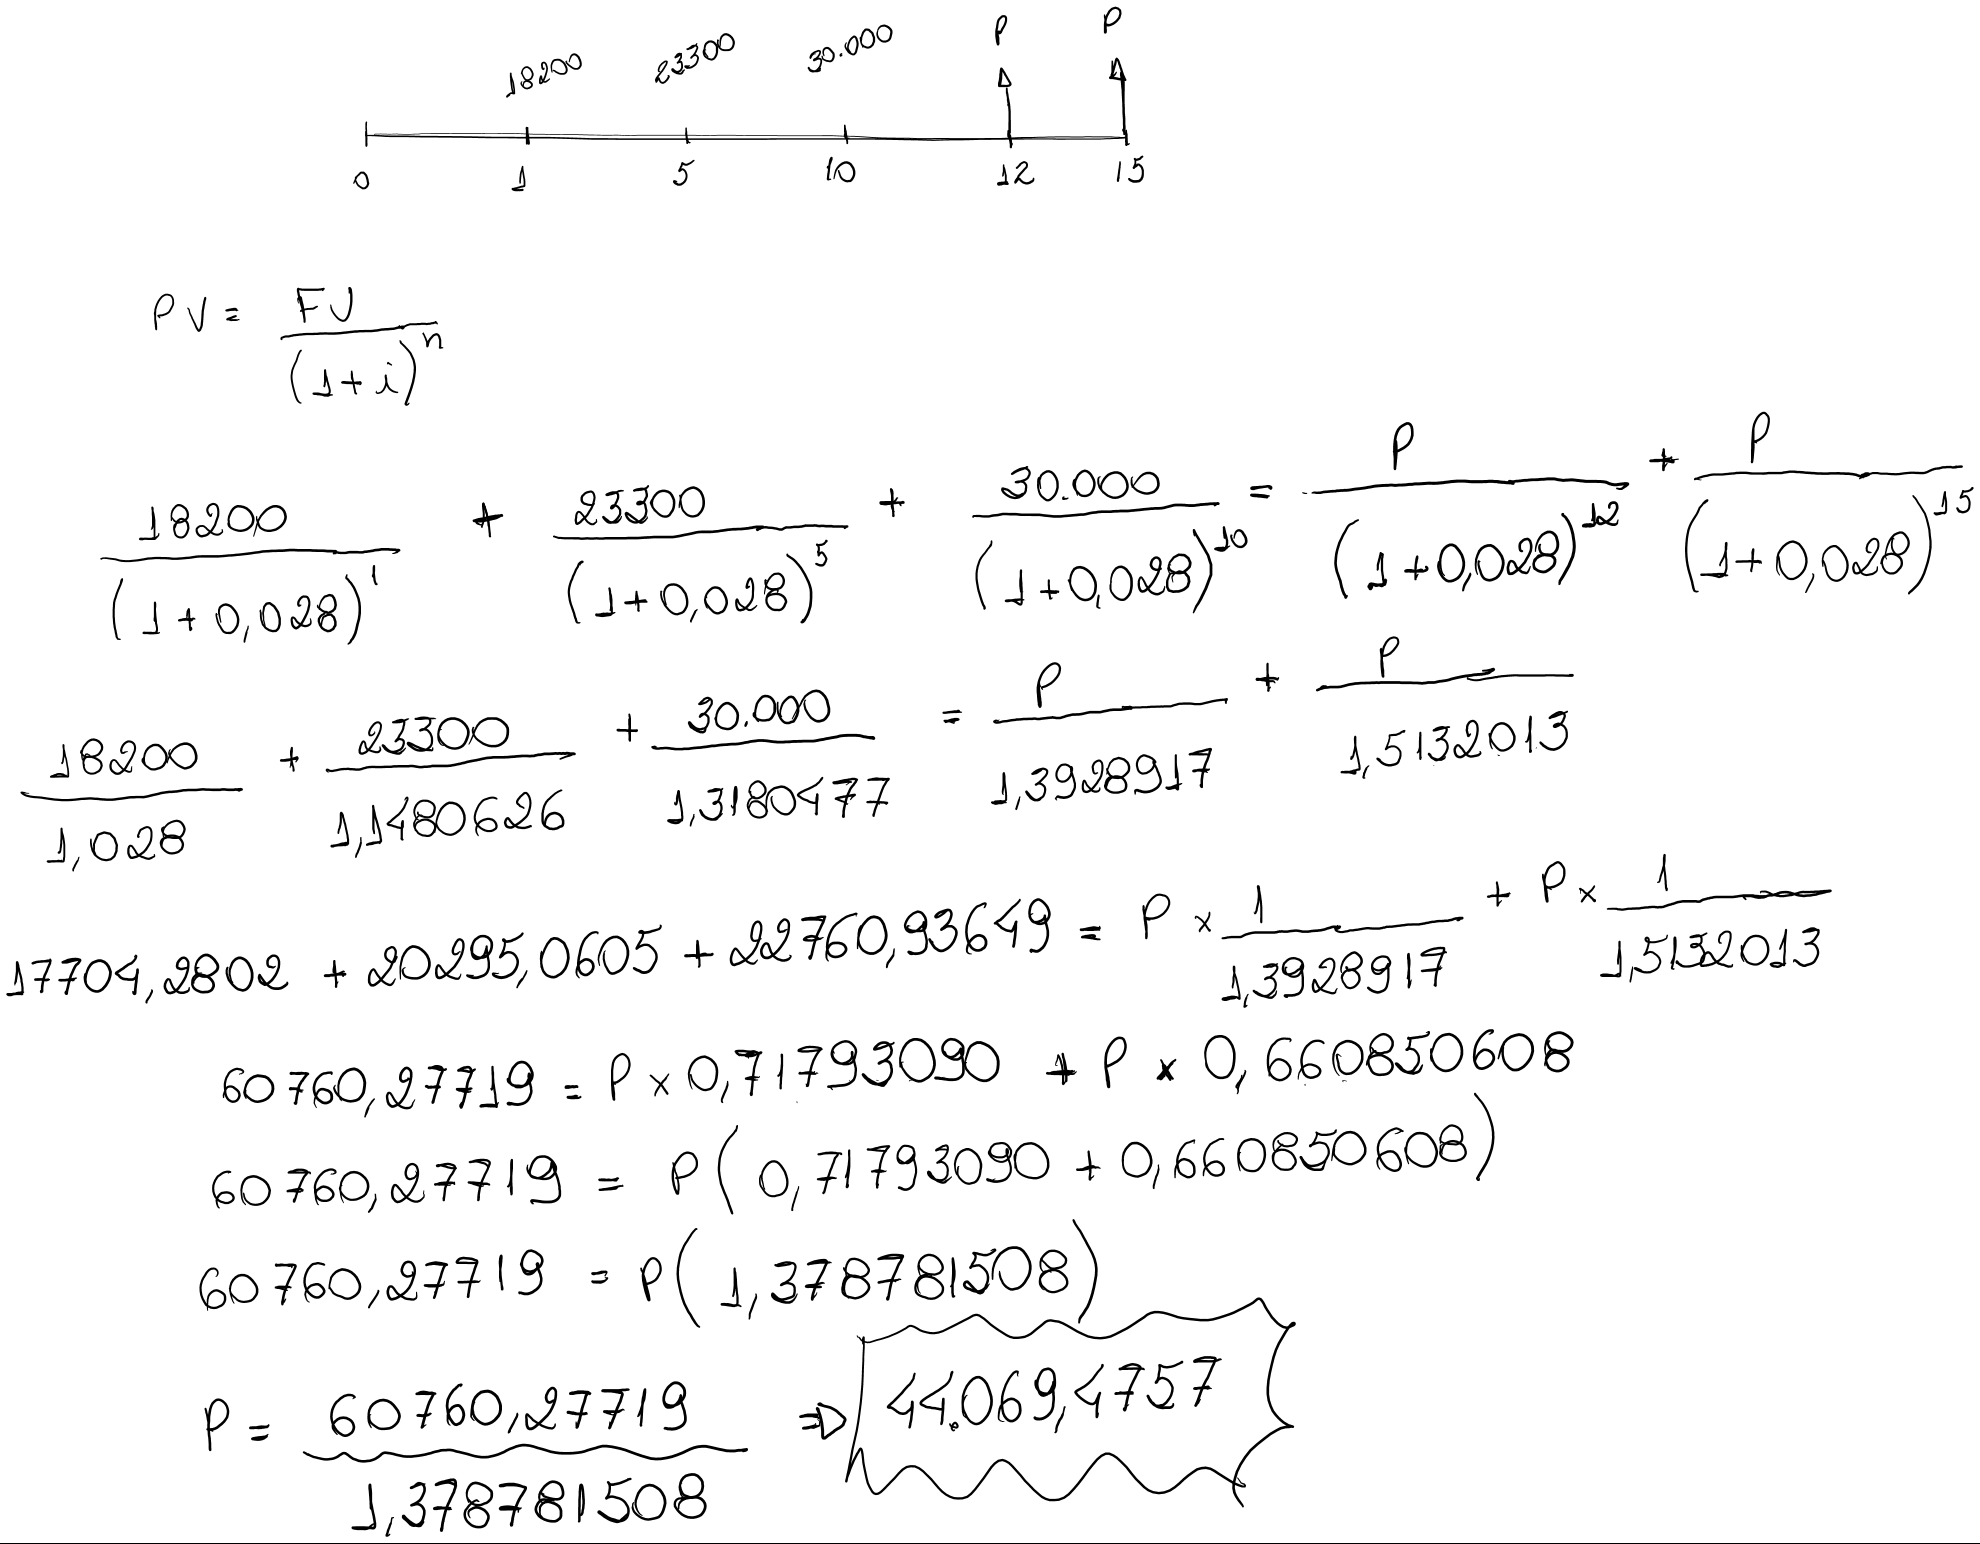 18200 23300 30.000 P P
0 1 5 10 12 15
PV = FV / (1+i)^n
18200 / (1+0,028)^1 + 23300 / (1+0,028)^5 + 30.000 / (1+0,028)^10 = P / (1+0,028)^12 + P / (1+0,028)^15
18200 / 1,028 + 23300 / 1,1480626 + 30.000 / 1,3180477 = P / 1,3928917 + P / 1,5132013
17704,2802 + 20295,0605 + 22760,93649 = P × 1 / 1,3928917 + P × 1 / 1,5132013
60760,27719 = P × 0,71793090 + P × 0,660850608
60760,27719 = P ( 0,71793090 + 0,660850608 )
60760,27719 = P ( 1,378781508 )
P = 60760,27719 / 1,378781508 ⇒ 44.069,4757